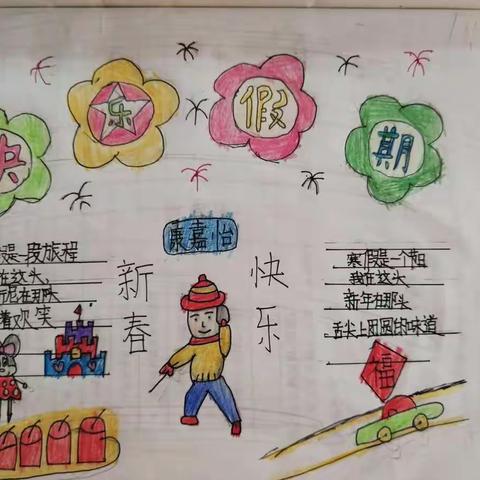 快乐假期
康嘉怡
新春
快乐
是一段旅程
在这头
在那头
着欢笑
寒假是一个节日
我在这头
新年在那头
舌尖上团圆的味道
福